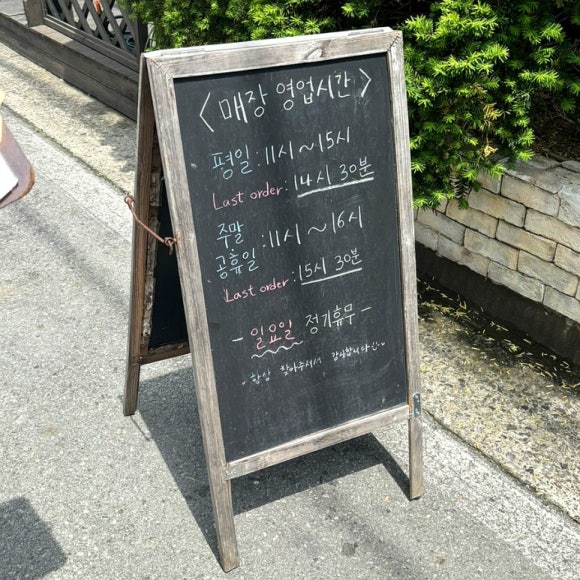 <매장 영업시간>
평일 : 11시~15시
Last order : 14시 30분
주말
공휴일 : 11시~16시
Last order : 15시 30분
- 일요일 정기휴무 -
항상 찾아주셔서 감사합니다